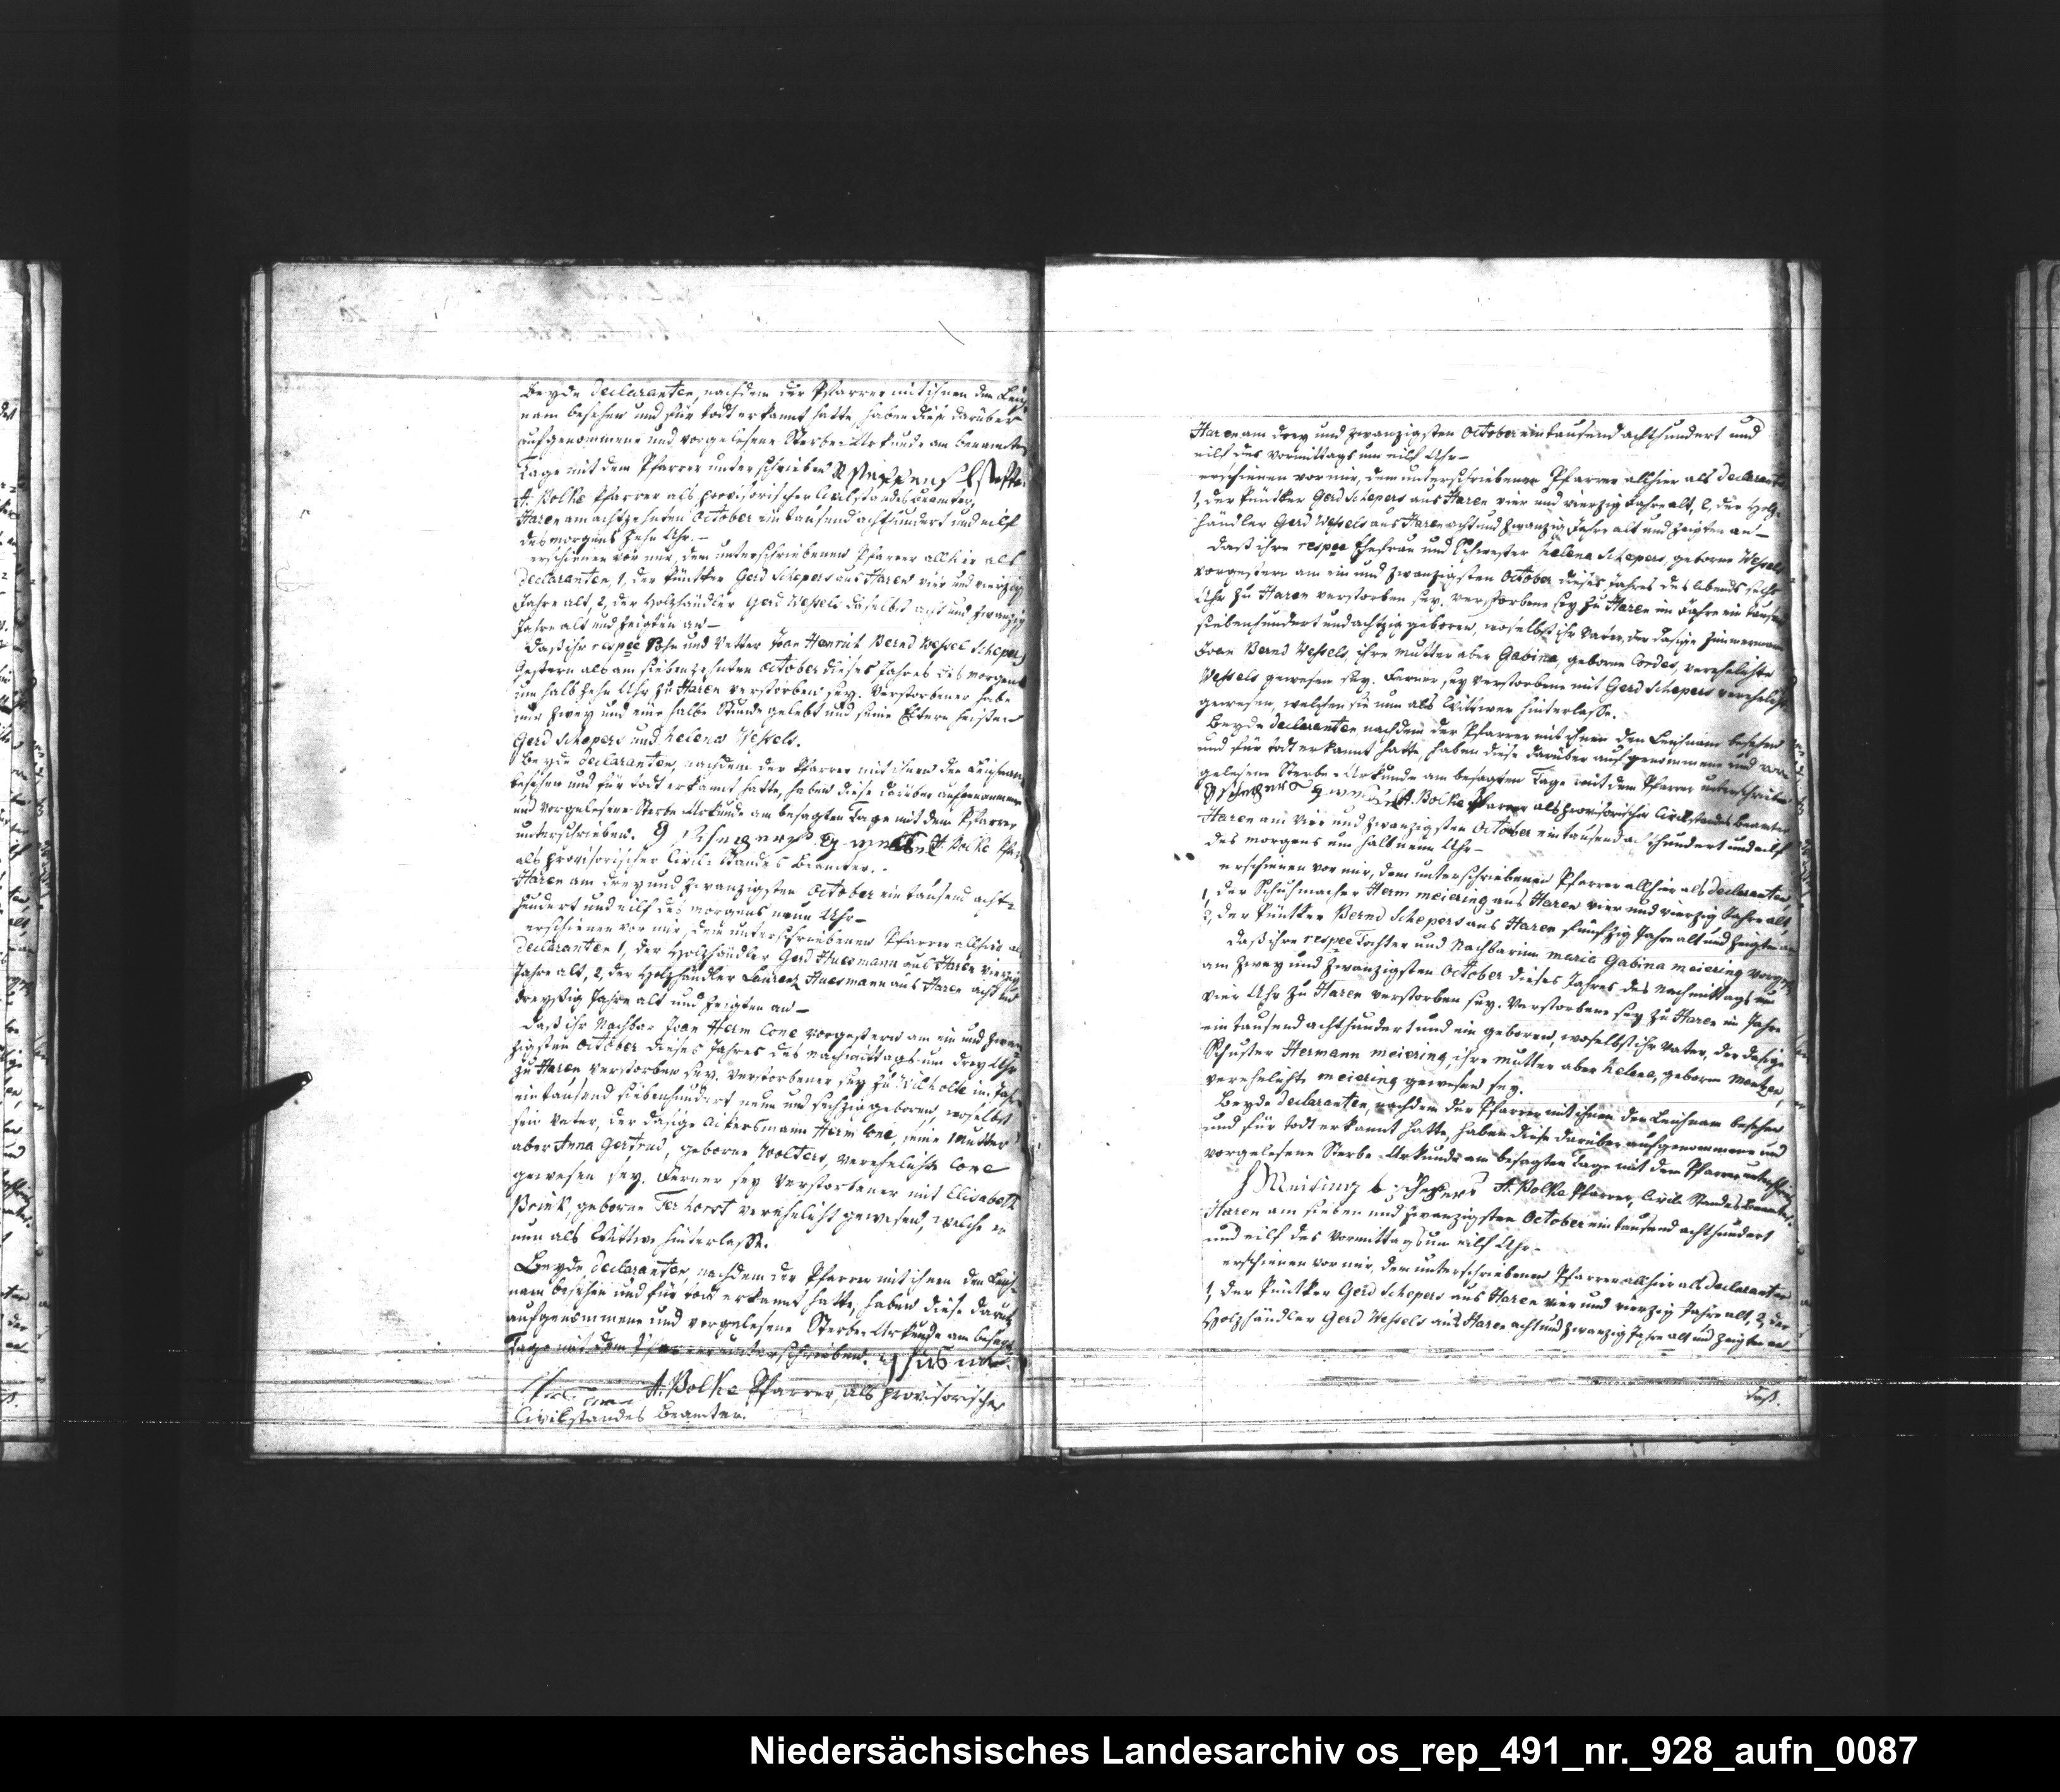 Beyde Declaranten, nachdem der Pfarrer mit ihnen den Leich
nam besehen und für todt erkannt hatte, haben diese darüber
aufgenommene und vorgelesene Sterbe-Urkunde am benannten
Tage mit dem Pfarrer unterschrieben
A. Bolke Pfarrer als provisorischer Civilstandes Beamter,
Haren am achtzehnten October ein tausend achthundert und eilf
des morgens zehn Uhr. –
erschienen vor mir, dem unterschriebenen Pfarrer allhier als
Declaranten, 1, der Püntker Gerd Schepers aus Haren vier und vierzig
Jahre alt, 2, der Holzhändler Gerd Wessels daselbst acht und zwanzig
Jahre alt und zeigten an –
Daß ihr respee Sohn und Vetter Joan Henrich Bernd Wessel Schepers
gestern als am siebenzehnten October dieses Jahres des morgens
um halb zehn Uhr zu Haren verstorben sey. Verstorbener habe
nur zwey und eine halbe Stunde gelebt und seine Eltern heissen
Gerd Schepers und helena Wessels.
Beyde Declaranten, nachdem der Pfarrer mit ihnen den Leichnam
besehen und für todt erkannt hatte, haben diese darüber aufgenommene
und vorgelesene Sterbe-Urkunde am besagten Tage mit dem Pfarrer
unterschrieben. G Schepers A. Bolke Pfar
als provisorischer Civil-Standes Beamter.
Haren am drey und zwanzigsten October ein tausend acht-
hundert und eilf des morgens neun Uhr –
erschienen vor mir, dem unterschriebenen Pfarrer allhier als
Declaranten 1, der Holzhändler Gerd Huesmann aus Haren vierzig
Jahre alt, 2, der Holzhändler Laurenz Huesmann aus Haren acht und
dreyßig Jahre alt und zeigten an –
Daß ihr Nachbar Joan Herm Cone vorgestern am ein und zwan
zigsten October dieses Jahres des nachmittags um drey Uhr
zu Haren verstorben sey. Verstorbener sey zu im Jahr
ein tausend siebenhundert neun und sechzig geboren, woselbst
sein Vater, der dasige Ackersmann Herm Cone, seine Mutter
aber Anna Gertrud, geborne Wolters, verehelichte Cone
gewesen sey. Ferner sey Verstorbener mit Elisabeth
Brink, geborne Terhorst verehelicht gewesen, welche er
nun als Wittwe hinterlasse.
Beyde Declaranten, nachdem der Pfarrer mit ihnen den Leich-
nam besehen und für todt erkannt hatte, haben diese darüb
aufgenommene und vorgelesene Sterbe-Urkunde am besagt
Tage mit dem Pfarrer unterschrieben.
A. Bolke Pfarrer, als provisorischer
Civilstandes Beamter.
Haren am drey und zwanzigsten October ein tausend achthundert und
eilf des vormittags um eilf Uhr –
erschienen vor mir, dem unterschriebenen Pfarrer allhier als Declaranten
1, der Püntker Gerd Schepers aus Haren vier und vierzig Jahre alt, 2, der Holz-
händler Gerd Wessels aus Haren acht und zwanzig Jahre alt und zeigten an –
Daß ihre respee Ehefrau und Schwester helena Schepers, geborne Wessels
vorgestern am ein und zwanzigsten October dieses Jahres des Abends sechs
Uhr zu Haren verstorben sey. Verstorbene sey zu Haren im Jahre ein tausend
siebenhundert und achtzig geboren, woselbst ihr Vater, der dasige Zimmermann
Joan Bernd Wessels, ihre Mutter aber Gabina, geborne Cordes, verehelichte
Wessels gewesen sey. Ferner sey Verstorbene mit Gerd Schepers verehelicht
gewesen, welchen sie nun als Wittwer hinterlasse.
Beyde Declaranten nachdem der Pfarrer mit ihnen den Leichnam besehen
und für todt erkannt hatte, haben diese darüber aufgenommene und vor-
gelesene Sterbe-Urkunde am besagten Tage mit dem Pfarrer unterschrieben
G Schepers A. Bolke Pfarrer als provisorischer Civilstandes Beamter
Haren am vier und zwanzigsten October ein tausend achthundert und eilf
des morgens um halb neun Uhr –
erschienen vor mir, dem unterschriebenen Pfarrer allhier als Declaranten,
1, der Schuhmacher Herm meiering aus Haren vier und vierzig Jahre alt,
2, der Püntker Bernd Schepers aus Haren fünfzig Jahre alt und zeigten an
Daß ihre respee Tochter und Nachbarinn maria Gabina meiering vorgest
am zwey und zwanzigsten October dieses Jahres des Nachmittags um
vier Uhr zu Haren verstorben sey. Verstorbene sey zu Haren im Jahre
ein tausend achthundert und ein geboren, woselbst ihr Vater, der dasige
Schuster Hermann meiering, ihre Mutter aber helena, geborne mentzen,
verehelichte meiering gewesen sey.
Beyde Declaranten, nachdem der Pfarrer mit ihnen den Leichnam besehen
und für todt erkannt hatte, haben diese darüber aufgenommene und
vorgelesene Sterbe-Urkunde am besagten Tage mit dem Pfarrer unterschrieb
H Meiring b schepers A. Bolke Pfarrer, Civil-Standes Beamter.
Haren am sieben und zwanzigsten October ein tausend acht hundert
und eilf des vormittags um eilf Uhr –
erschienen vor mir, dem unterschriebenen Pfarrer allhier als Declaranten
1, der Püntker Gerd Schepers aus Haren vier und vierzig Jahre alt, 2, der
Holzhändler Gerd Wessels aus Haren acht und zwanzig Jahre alt und zeigten an
Daß.
Niedersächsisches Landesarchiv os_rep_491_nr._928_aufn_0087